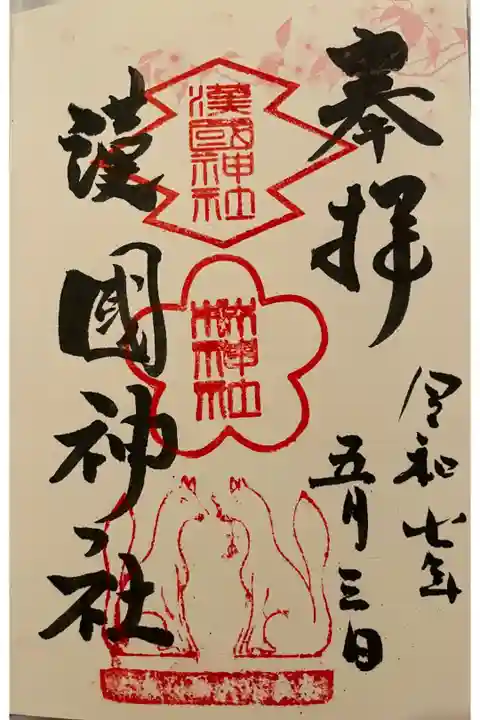 奉拝
令和七年
五月三日
漢國神社
林神社
漢國神社